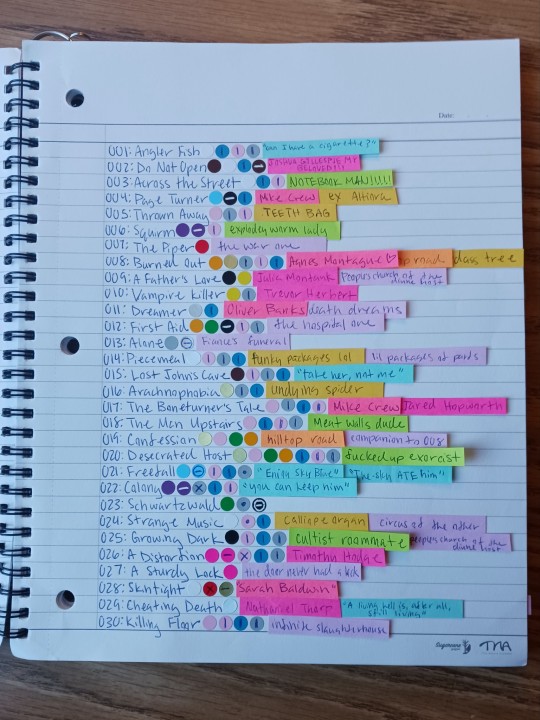 Date:
001: Angler Fish "can I have a cigarette?"
002: Do Not Open JOSHUA GILLESPIE MY BELOVED!!!
003: Across the Street NOTEBOOK MAN!!!!
004: Page Turner Mike Crew ex Altiora
005: Thrown Away TEETH BAG
006: Squirm explodey worm lady
007: The Piper the war one
008: Burned Out Agnes Montague♡ road dass tree
009: A Father's Love Julia Montauk Peoples church of the divine host
010: Vampire Killer Trevor Herbert
011: Dreamer Oliver Banks death dreams
012: First Aid the hospital one
013: Alone fiance's funeral
014: Piecemeal funky packages lol lil packages of parts
015: Lost John's Cave "take her, not me"
016: Arachnophobia undying spider
017: The Boneturner's Tale Mike Crew Jared Hopworth
018: The Man Upstairs Meat walls dude
019: Confession hilltop road companion to 008
020: Desecrated Host fucked up exorcist
021: Freefall "Enjoy Sky Blue" "The sky ATE him"
022: Colony "you can keep him"
023: Schwartzwald
024: Strange Music Calliope organ circus of the other
025: Growing Dark cultist roommate peoples church of the divine host
026: A Distortion Timothy Hodge
027: A Sturdy Lock the door never had a lock
028: Skintight "Sarah Baldwin"
029: Cheating Death Nathaniel Thorp "A living hell is, after all, still living"
030: Killing Floor infinite slaughterhouse
TMA